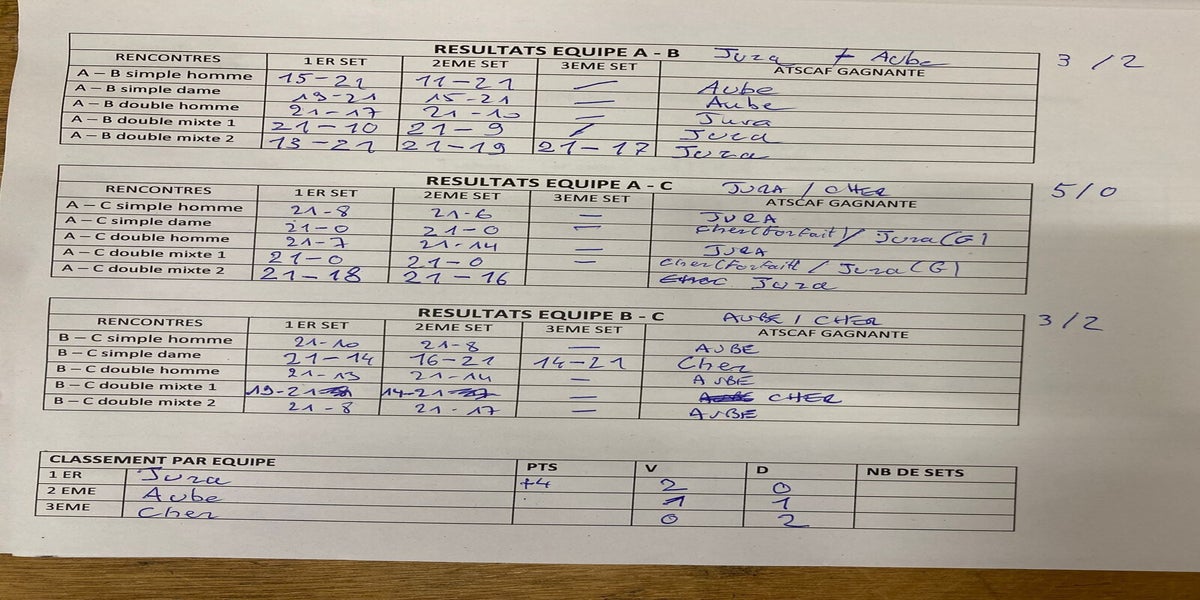 RESULTATS EQUIPE A - B Jura + Aube 3 / 2
RENCONTRES 1 ER SET 2EME SET 3EME SET ATSCAF GAGNANTE
A – B simple homme 15-21 11-21 — Aube
A – B simple dame 19-21 15-21 — Aube
A – B double homme 21-17 21-10 — Jura
A – B double mixte 1 21-10 21-9 / Jura
A – B double mixte 2 13-21 21-19 21-17 Jura
RESULTATS EQUIPE A - C JURA / CHER 5/0
RENCONTRES 1 ER SET 2EME SET 3EME SET ATSCAF GAGNANTE
A – C simple homme 21-8 21-6 = JURA
A – C simple dame 21-0 21-0 = Cher (Forfait) / Jura (G)
A – C double homme 21-7 21-14 = JURA
A – C double mixte 1 21-0 21-0 = Cher (Forfait) / Jura (G)
A – C double mixte 2 21-18 21-16 Jura
RESULTATS EQUIPE B - C AUBE / CHER 3/2
RENCONTRES 1 ER SET 2EME SET 3EME SET ATSCAF GAGNANTE
B – C simple homme 21-10 21-8 — AUBE
B – C simple dame 21-14 16-21 14-21 Cher
B – C double homme 21-13 21-14 — AUBE
B – C double mixte 1 19-21 14-21 — CHER
B – C double mixte 2 21-8 21-17 = AUBE
CLASSEMENT PAR EQUIPE PTS V D NB DE SETS
1 ER Jura +4 2 0
2 EME Aube 1 1
3EME Cher 0 2